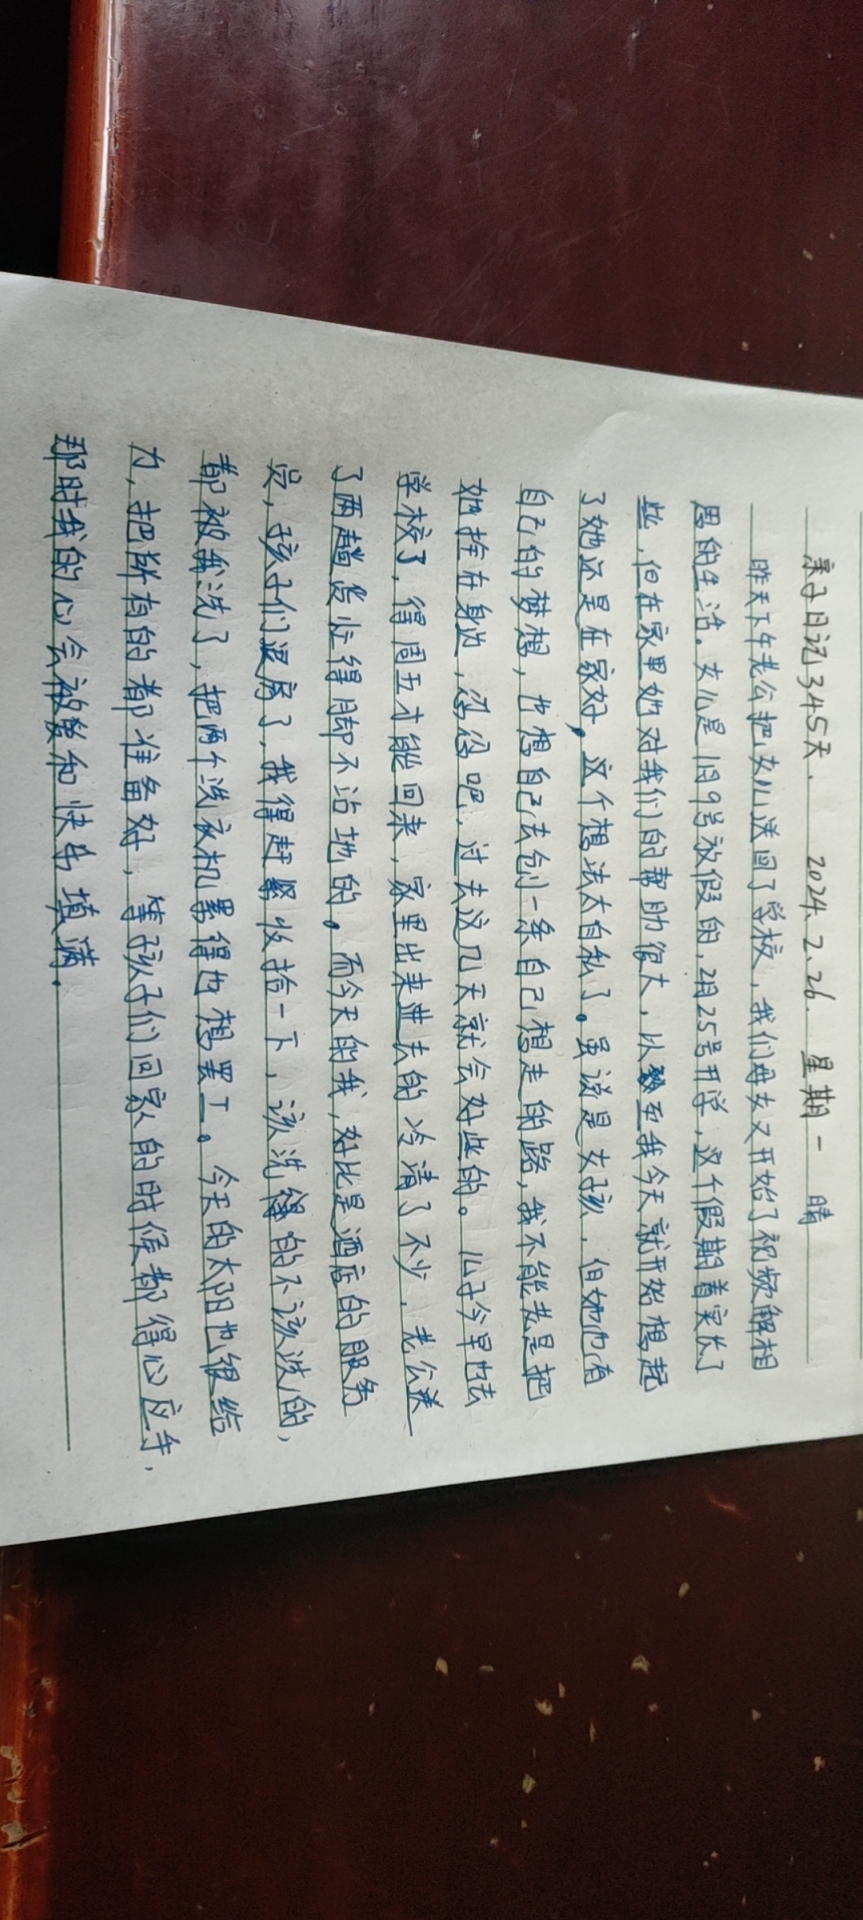 亲子日记345天. 2024.2.26. 星期一 晴
昨天下午老公把女儿送回了学校，我们母女又开始了视频解相
思的生活。女儿是1月9号放假的，2月25号开学，这个假期着实长了
些，但在家里她对我们的帮助很大，以至我今天就开始想起
了她还是在家好，这个想法太自私了。虽说是女孩，但她也有
自己的梦想，也想自己去创一条自己想走的路，我不能老是把
她拴在身边，添添吧，过去这几天就会好些的。儿子今早也去
学校了，得周五才能回来，家里出来进去的冷清了不少，老公送
了两趟货忙得脚不沾地的。而今天的我，好比是酒店的服务
员，孩子们退房了，我得赶紧收拾一下，该洗得的不该洗的，
都被我洗了，把两个洗衣机累得也想罢工。今天的太阳也很给
力，把所有的都准备好，等孩子们回家的时候都得心应手，
那时我的心会被爱和快乐填满.